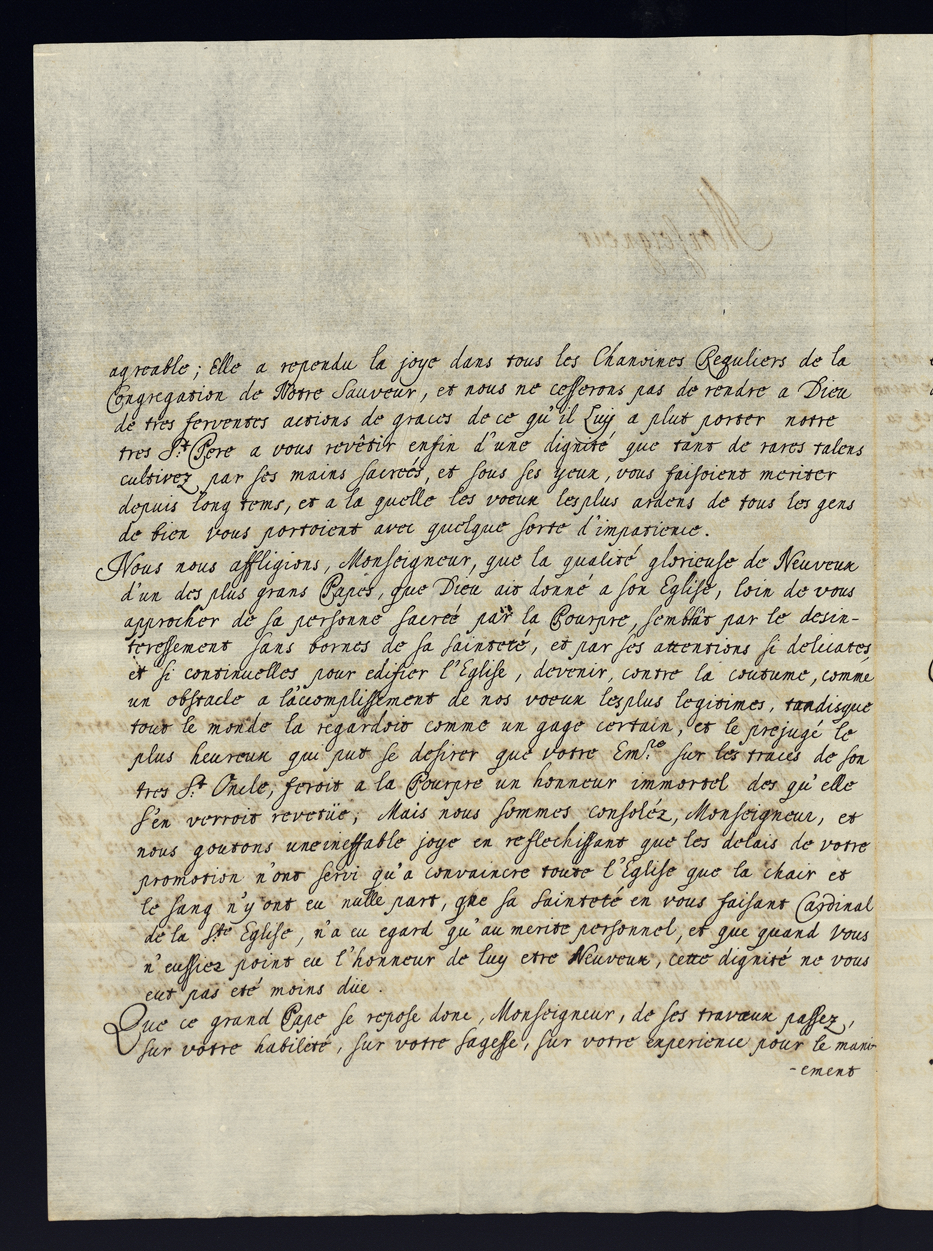 Monseigneur
agreable ; Elle a rependu la joye dans tous les Chanoines Reguliers de la
Congregation de Nôtre Sauveur, et nous ne cesserons pas de rendre a Dieu
de tres ferventes actions de graces de ce qu'il Luy a plut porter notre
tres St. Pere a vous revêtir enfin d'une dignité que tant de rares talens
cultivez par ses mains sacreés, et sous ses yeux, vous faisoient meriter
depuis long tems, et a la quelle les voeux les plus ardens de tous les gens
de bien vous portoient avec quelque sorte d'impatience.
Nous nous affligions, Monseigneur, que la qualité glorieuse de Neuveux
d'un des plus grans Papes, que Dieu ait donné a son Eglise, loin de vous
approcher de sa personne sacreé par la Pourpre, semblât par le desin-
teressement sans bornes de sa sainteté, et par ses attentions si delicates
et si continuelles pour edifier l'Eglise, devenir, contre la coutume, comme
un obstacle a l'acomplissement de nos voeux les plus legitimes, tandisque
tout le monde la regardoit comme un gage certain, et le prejugé le
plus heureux qui put se desirer que votre Em.ce sur les traces de son
tres St. Oncle, feroit a la Pourpre un honneur immortel des qu'elle
s'en verroit revetüe; Mais nous sommes consoléz, Monseigneur, et
nous goutons une ineffable joye en reflechissant que les delais de votre
promotion n'ont servi qu'a convaincre toute l'Eglise que la chair et
le sang n'y ont eu nulle part, que sa Sainteté en vous faisant Cardinal
de la Ste Eglise, n'a eu egard qu'au merite personnel, et que quand vous
n'eussiez point eu l'honneur de luy etre Neuveux, cette dignité ne vous
eut pas eté moins düe.
Que ce grand Pape se repose donc, Monseigneur, de ses travaux passez,
sur votre habileté, sur votre sagesse, sur votre experience pour le mani-
-ement